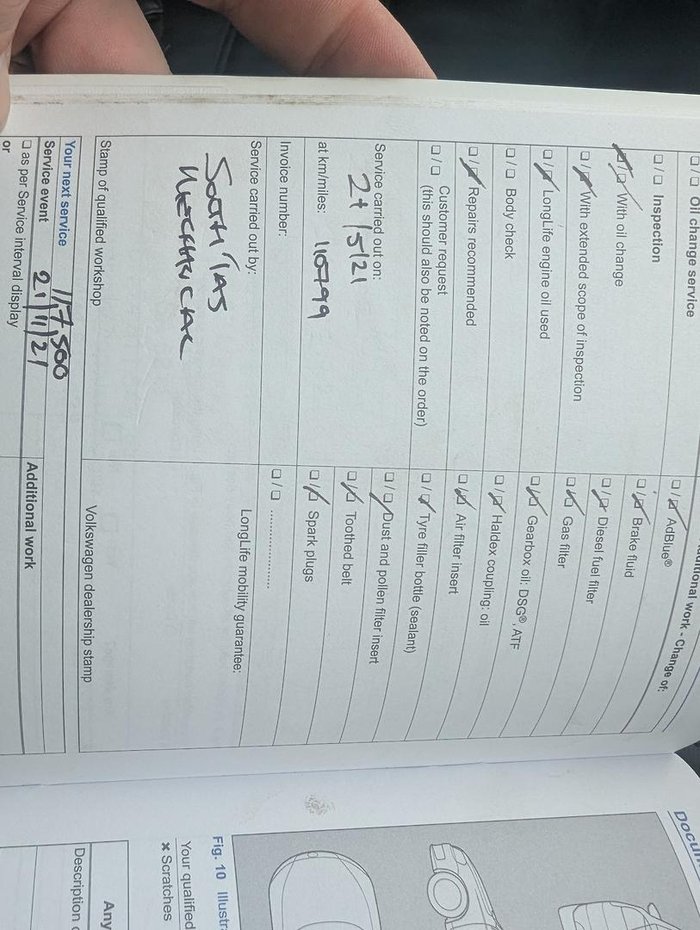 Oil change service
Inspection
With oil change
With extended scope of inspection
LongLife engine oil used
Body check
Repairs recommended
Customer request
(this should also be noted on the order)
Service carried out on:
at km/miles:
Invoice number:
Service carried out by:
SOUTH TAS
MECHANICAL
Stamp of qualified workshop
Additional work - Change of:
AdBlue®
Brake fluid
Diesel fuel filter
Gas filter
Gearbox oil: DSG®, ATF
Haldex coupling: oil
Air filter insert
Tyre filler bottle (sealant)
Dust and pollen filter insert
Toothed belt
Spark plugs
LongLife mobility guarantee:
Volkswagen dealership stamp
Your next service 117,500
Service event 21/11/21
as per Service interval display
or
Additional work
Fig. 10
Your qualified
× Scratches
Any
Description